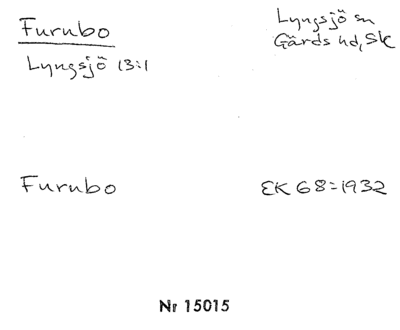 Furubo
Lyngsjö sn
Gärds hd, Sk
Lyngsjö 13:1
Furubo
EK 68=1932
Nr 15015